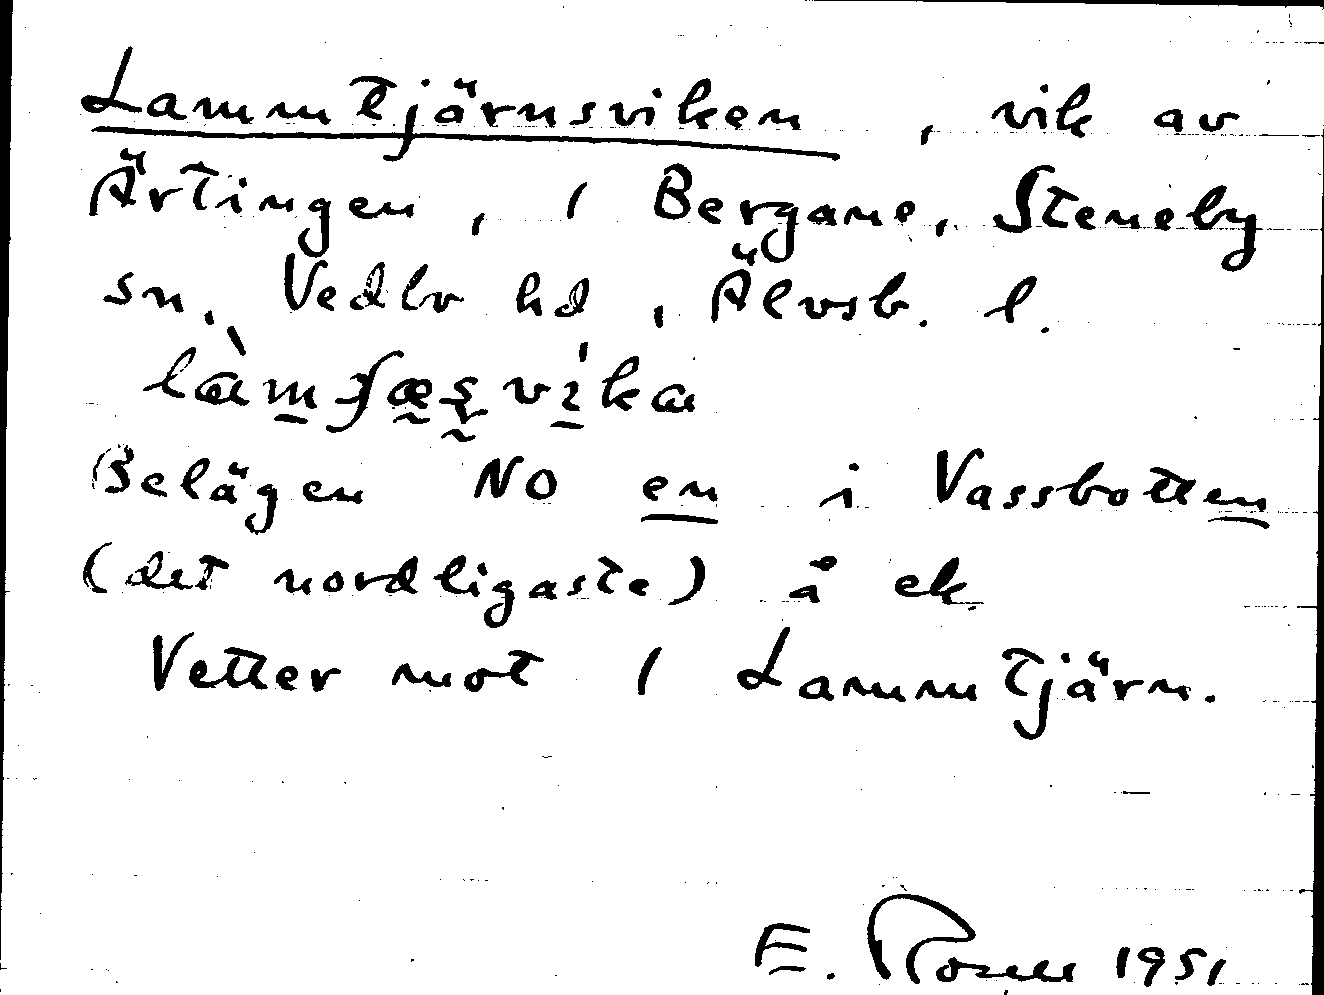 Lammtjärnsviken, vik av
Ärtingen, 1 Bergane, Steneby
sn, Vedbo hd, Älvsb. l.
Belägen NO en i Vassbotten
(det nordligaste) å ek.
Vetter mot 1 Lammtjärn.
E. Rosell 1951